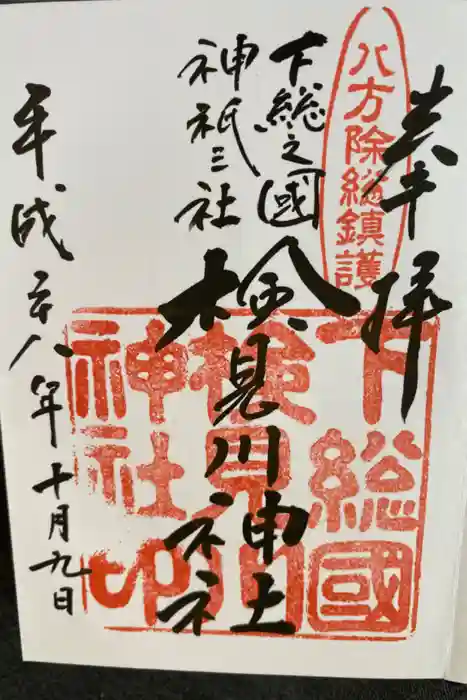 奉拝
八方除総鎮護
下総之國
神祇三社
検見川神社
下総國
検見川
神社印
平成二十八年十月九日